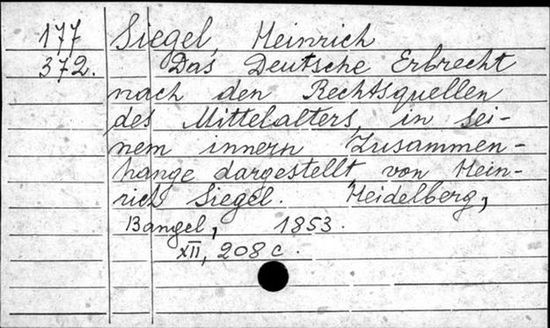 177 Siegel, Heinrich
372. Das Deutsche Erbrecht
nach den Rechtsquellen
des Mittelalters in sei-
nem innern Zusammen-
hange dargestellt von Hein-
rich Siegel. Heidelberg,
Bangel, 1853.
XII, 208 c.